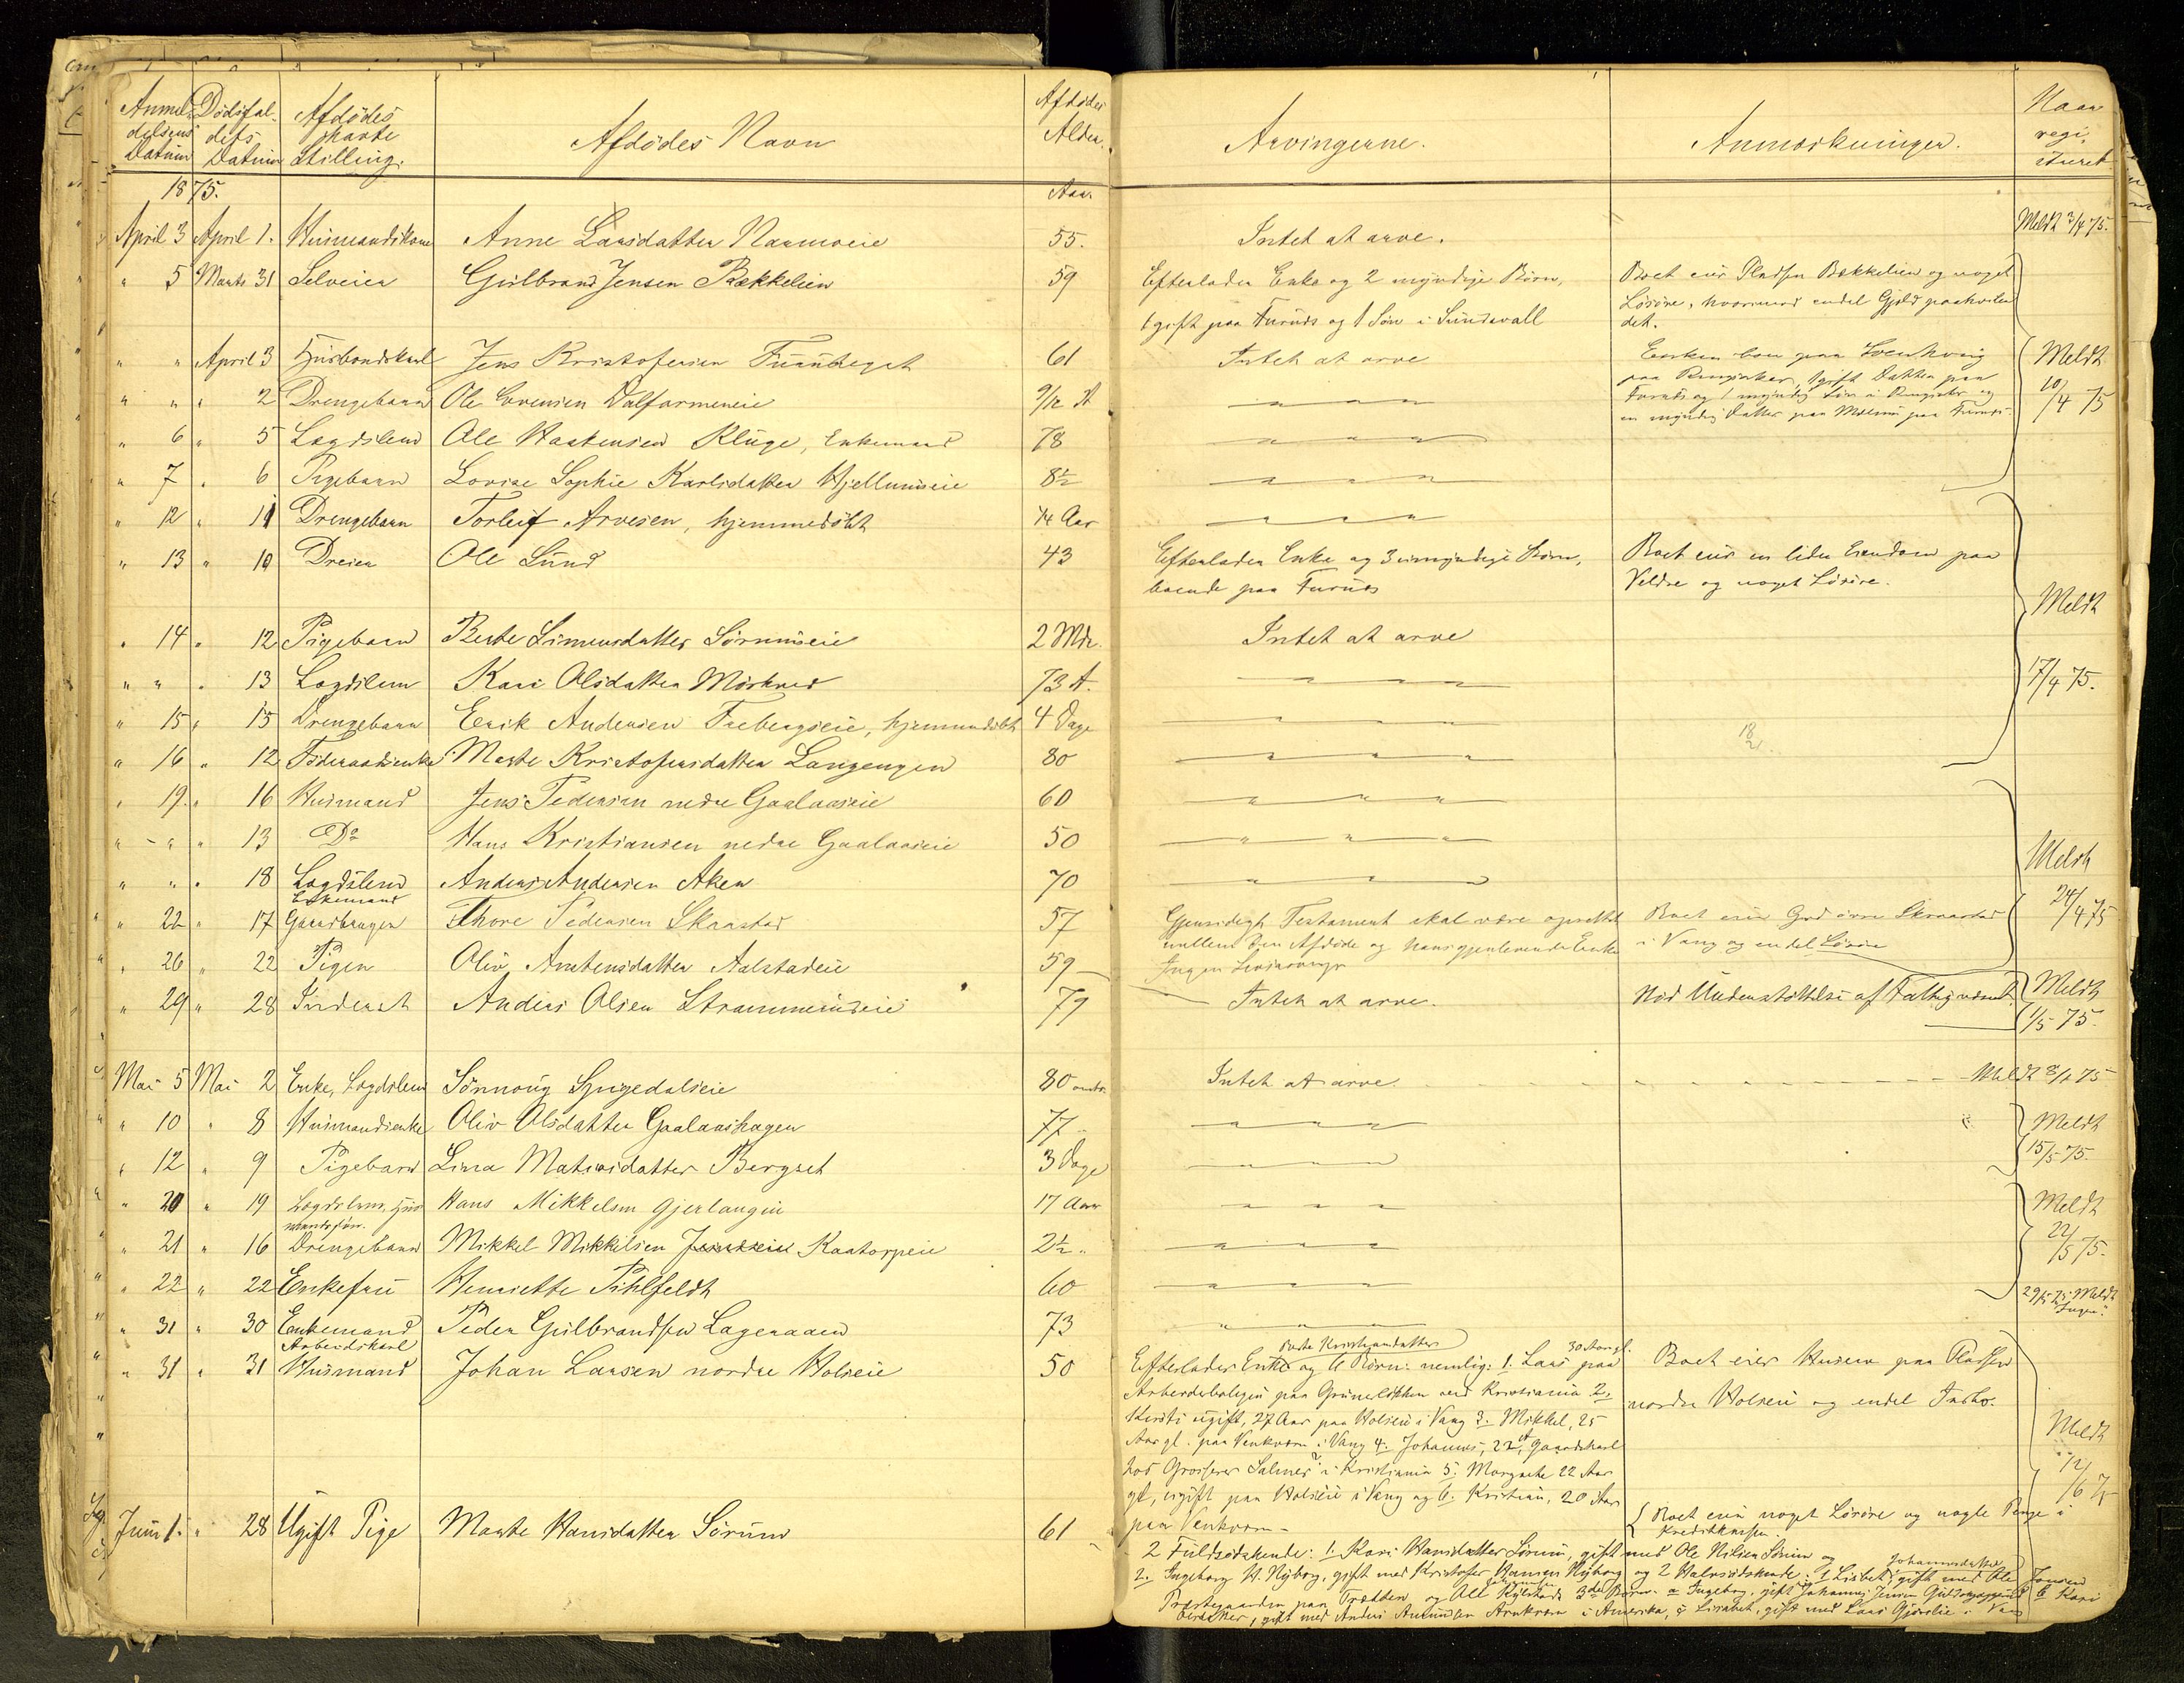 Anmeldelsens Datum Dödsfaldets Datum Afdödes Stilling. Afdödes Navn Afdödes Alder. Arvingerne. Anmærkninger. Naar registreret
1875. Aar
April 3 April 1. Husmandskone Anne Larsdatter 55. Intet at arve. Meldt 3/4 75.
" 5 Marts 31 Selveier Gulbrand Jensen Bækkelien 59 Efterlader Enke og 2 myndige Börn, Boet eier Pladsen Bækkelien og noget
1 gift paa Furnæs og 1 Sön i Sundsvall Lösöre, hvorimod endel Gjæld paahviler
det.
" " April 3 Husbondskarl Jens Kristofersen 61 Intet at arve Enken bor paa
paa Ringsaker, 1 gift Datter paa Meldt
" " " 2 Drengebarn Ole 9/12 A " " " Furnæs og 1 myndig Sön i Ringsaker og 10/4 75
en myndig Datter paa paa Furnæs
" 6 " 5 Lægdslem Ole Haakensen Kluge, Enkemand 78 " " "
" 7 " 6 Pigebarn Lovise Sophie Karlsdatter Hjellumseie 8½ " " "
" 12 " 11 Drengebarn Torleif Arvesen, hjemmedöbt 1/4 Aar " " "
" 13 " 10 Dreier Ole Lund 43 Efterlader Enke og 3 umyndige Börn, Boet eier en liden Eiendom paa
boende paa Furnæs Veldre og noget Lösöre.
Meldt
" 14 " 12 Pigebarn Berte Simensdatter 2 Mdr. Intet at arve
" " " 13 Lægdslem Kari Olsdatter Mörkved 73 A. " " " 17/4 75.
" 15 " 15 Drengebarn Erik Andersen Frebergseie, hjemmedöbt 4 Dage " " "
" 16 " 12 Föderaadsenke Marte Kristofersdatter Langengen 80 " " "
" 19. " 16 Husmand Jens Pedersen nedre Gaalaaseie 60 " " "
" " " 13 Do Hans Kristiansen nedre Gaalaaseie 50 " " "
Meldt
" " " 18 Lægdslem Anders Andersen Aker 70 " " "
Enkemand 24/4 75
" 22 " 17 Gaardbruger Thore Pedersen Skraastad 57 Gjensidigt Testament skal være oprettet Boet eier Grd övre Skraastad
mellem den Afdöde og hans gjenlevende Enke i Vang og endel Lösöre
" 26 " 22 Pigen Oliv Arntensdatter 59 Ingen Livsarvinger
" 29 " 28 Inderst Anders Olsen 79 Intet at arve. Nöd Understöttelse af Fattigvæsnet. Meldt
1/5 75.
Mai 5 Mai 2 Enke, Lægdslem Sönnoug 80 Intet at arve Meldt 8/5 75
" 10 " 8 Husmandsenke Oliv Olsdatter Gaalaashagen 77 " " " Meldt
" 12 " 9 Pigebarn Lina Matisdatter Bergset 3 Dage " " " 15/5 75.
" 20 " 19 Lægdslem, Hus Hans Mikkelsen 17 Aar " " " Meldt
mandssön.
" 21 " 16 Drengebarn Mikkel Mikkelsen Kaatorpeie 2½ " " " 22/5 75.
" 22 " 22 Enkefru Henriette Pihlfeldt 60 " " "
29/5 75 Meldt "Ingen".
" 31 " 30 Enkemand Peder Gulbrandsen Lageraaen 73 " " "
Arbeidskarl Berte Kristiansdatter 30 Aar gl.
" 31 " 31 Husmand Johan Larsen nordre Holseie 50 Efterlader Enke og 6 Börn: nemlig: 1. Lars paa Boet eier Husene paa Pladsen
Arbeiderboligen paa Grünerlökken ved Kristiania 2. nordre Holseie og endel Indbo.
Kersti ugift, 27 Aar paa Holseie i Vang 3. Mikkel, 25
Aar gl. paa Venkværn i Vang 4. Johannes, 22 A, Gaardskarl Meldt
hos Grosserer Salmer i Kristiania 5. Margrete 22 Aar 12/6 75
gl, ugift paa Holseie i Vang og 6. Kristian, 20 Aar
paa Venkværn Boet eier noget Lösöre og nogle Penge i
Juni 1. " 28 Ugift Pige Marte Hansdatter Sörum 61 Kreditkassen.
2 Fuldsödskende: 1. Kari Hansdatter Sörum, gift med Ole Nilsen Sörum og
2. Ingeborg H. Nyborg, gift med Kristofer Hansen Nyborg og 2 Halvsödskende: 1 Lisbet Johannesdatter gift med Ole Jonsen
Præstegaarden paa Trædden og Ole 3de Börn. a Ingeborg, gift Johannes Jensen b Kari
gift med Anders Amundsen i Amerika, c Lisabet, gift med Lars i Vang